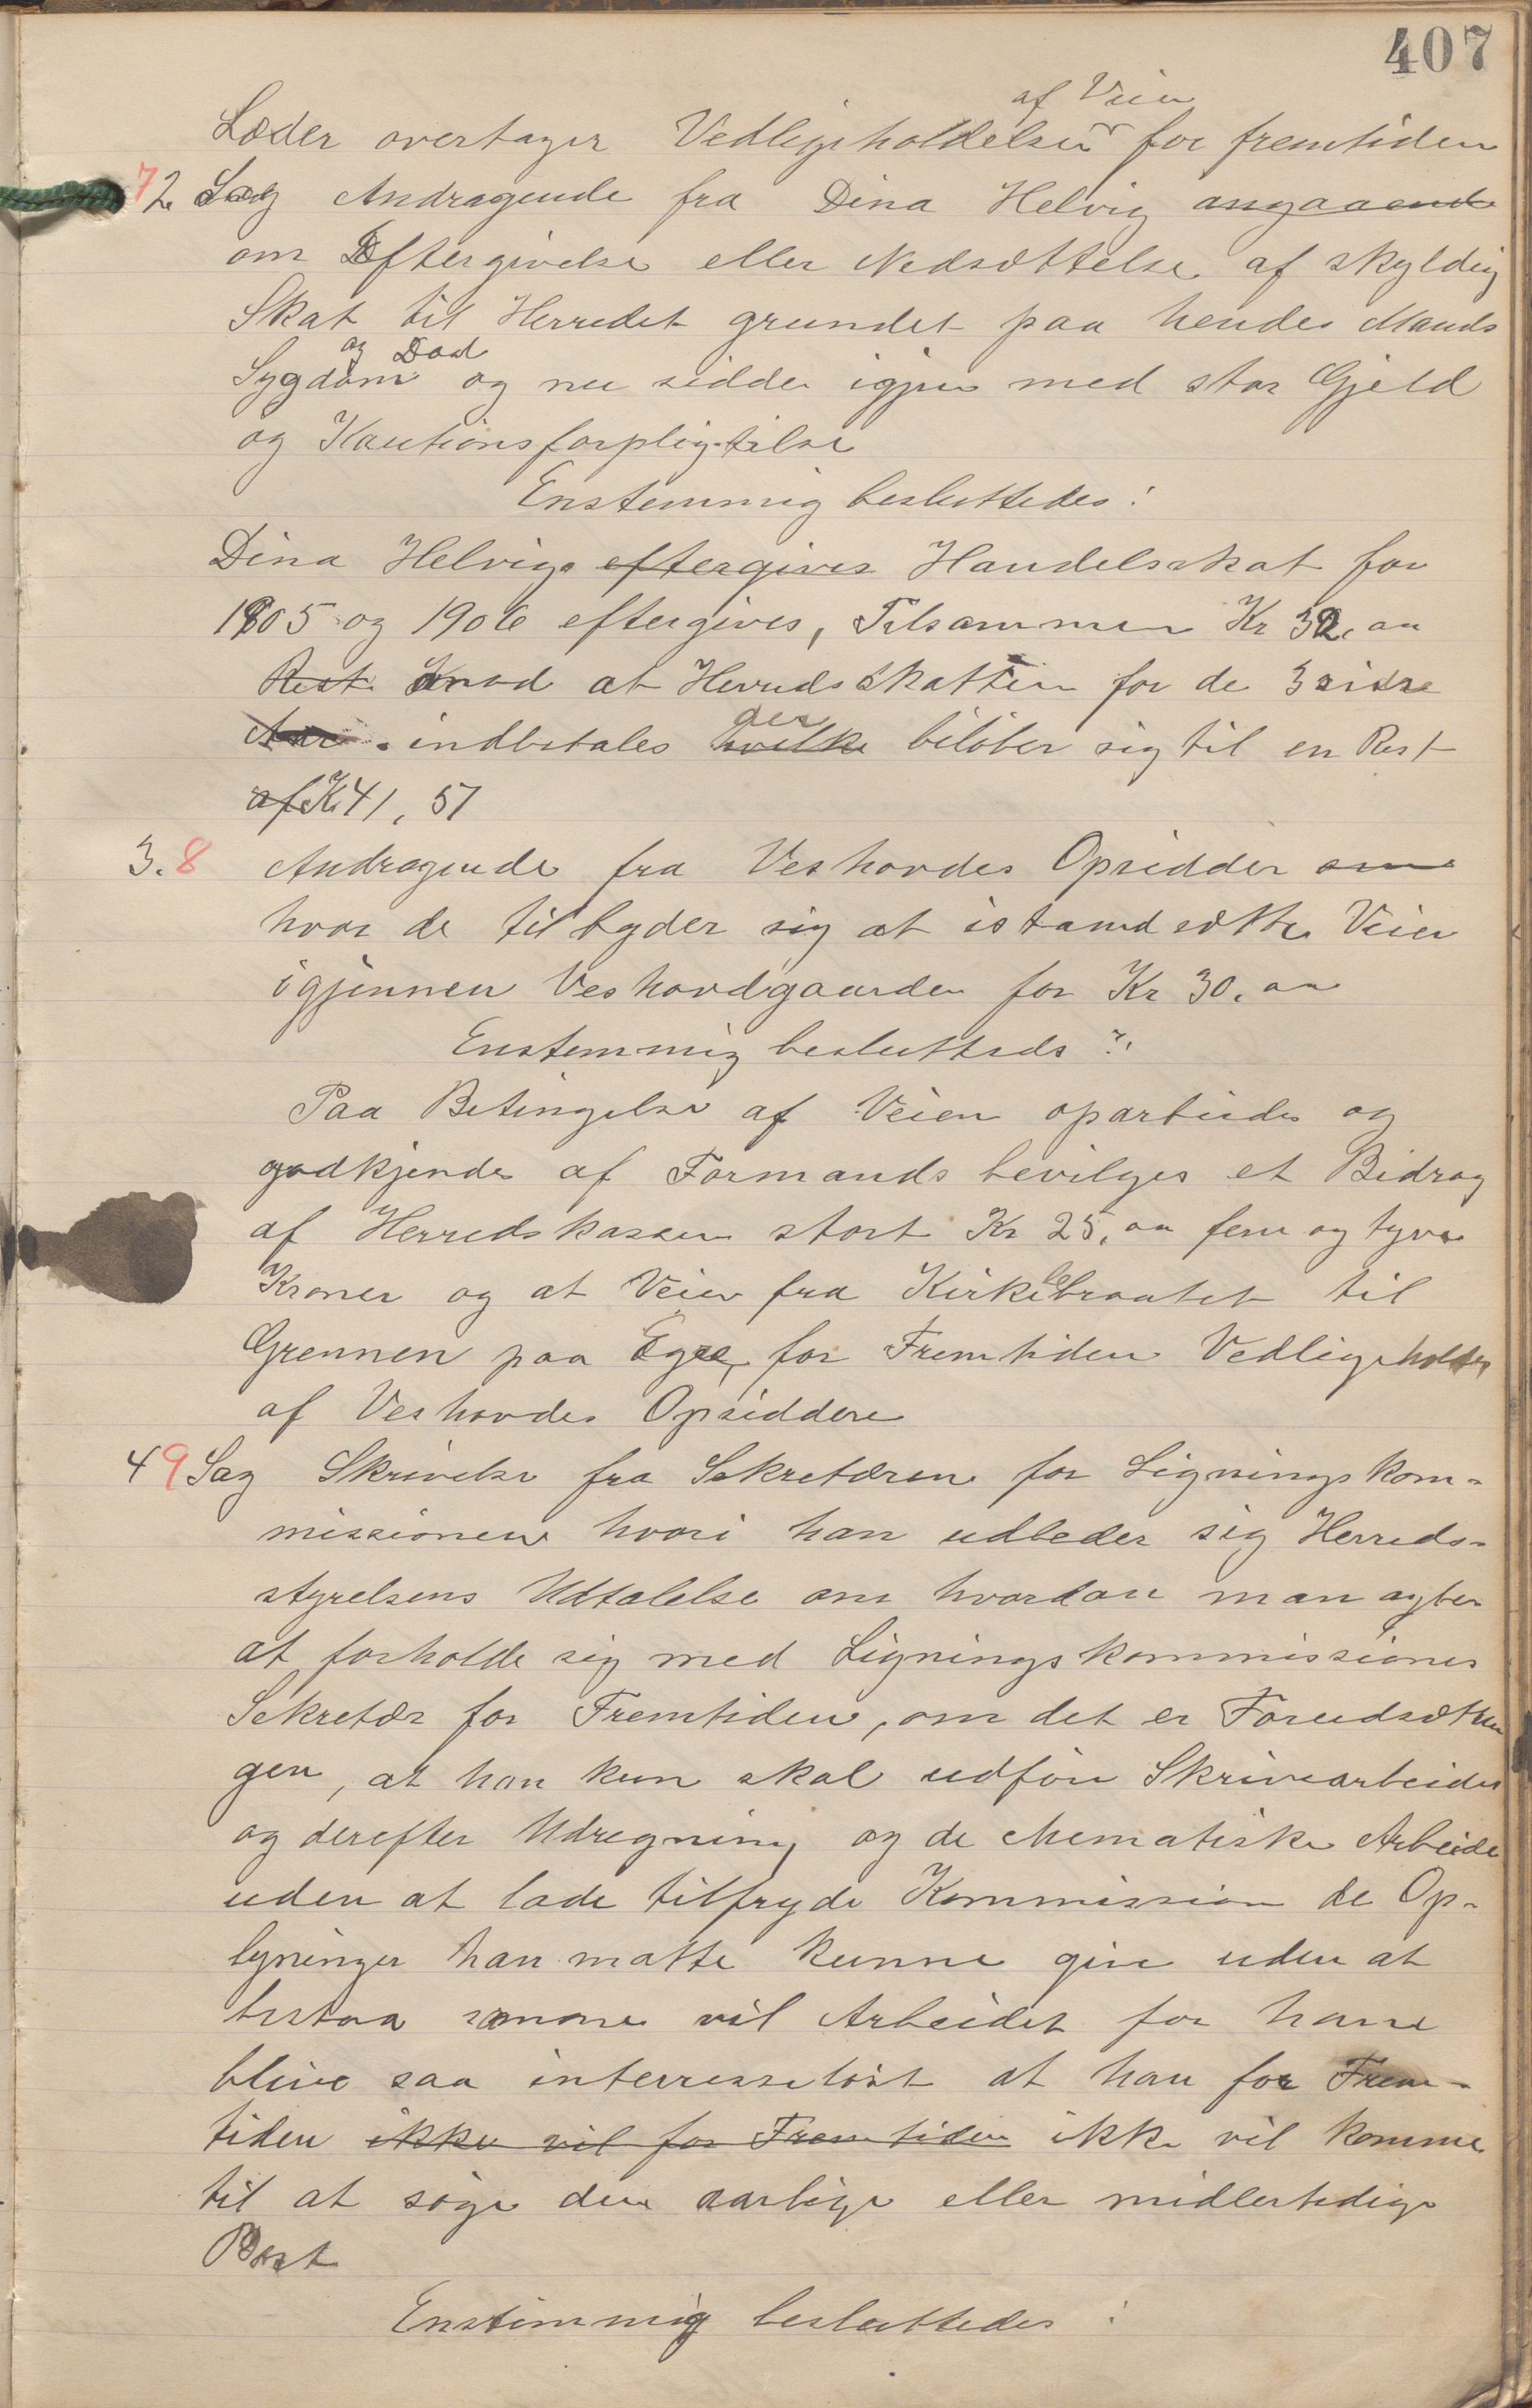 407
Læder overtager Vedligeholdelsen af Veien for fremtiden
72. Sag Andragende fra Dina Helvig angaaende
om Eftergivelse eller Nedsættelse af skyldig
Skat til Herredet grundet paa hendes Mands
Sygdom og Død og nu sidder igjen med stor Gjeld
og Kautionsforpligtelse
Enstemmig besluttedes:
Dina Helvigs eftergives Handelsskat for
1905 og 1906 eftergives, Tilsammen Kr 32,00
Rest mod at Herredsskatten for de 3 sidse
Aar indbetales hvilke der beløber sig til en Rest
af Kr 41,51
3. 8 Andragende fra Veshovdes Opsidder om
hvor de tilbyder sig at istandsætte Veien
igjennem Veshovdgaarden for Kr 30,00
Enstemmig beslutteds:
Paa Betingelse af Veien oparbeides og
godkjendes af Formands bevilges et Bidrag
af Herredskassen stort Kr 25,00 fem og tyve
Kroner og at Veien fra Kirkebraatet til
Grennen paa Egre, for Fremtiden Vedligeholdes
af Veshovdes Opsiddere
4 9 Sag Skrivelse fra Sekretæren for Ligningskom-
missionen hvori han udbeder sig Herreds-
styrelsens Udtalelse om hvordan man agter
at forholde sig med Ligningskommissiones
Sekretær for Fremtiden, om det er Forudsætnin
gen, at han kun skal udføre Skrivearbeider
og derefter Udregning og de Mematiske Arbeide
uden at lade tilfryde Kommission de Op-
lysninger han matte kunne give uden at
bistaa samme vil Arbeidet for ham
blive saa interresseløst at han for Frem-
tiden ikke vil for Fremtiden ikke vil komme
til at søge den aarlige eller midlertidige
Post
Enstimmig besluttedes: